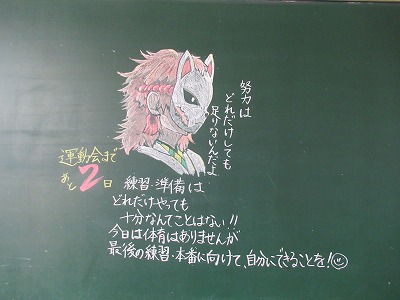 努力は
どれだけしても
足りないんだよ
運動会まで
あと2日
練習・準備は
どれだけやっても
十分なんてことはない!!
今日は体育はありませんが
最後の練習・本番に向けて、自分にできることを!